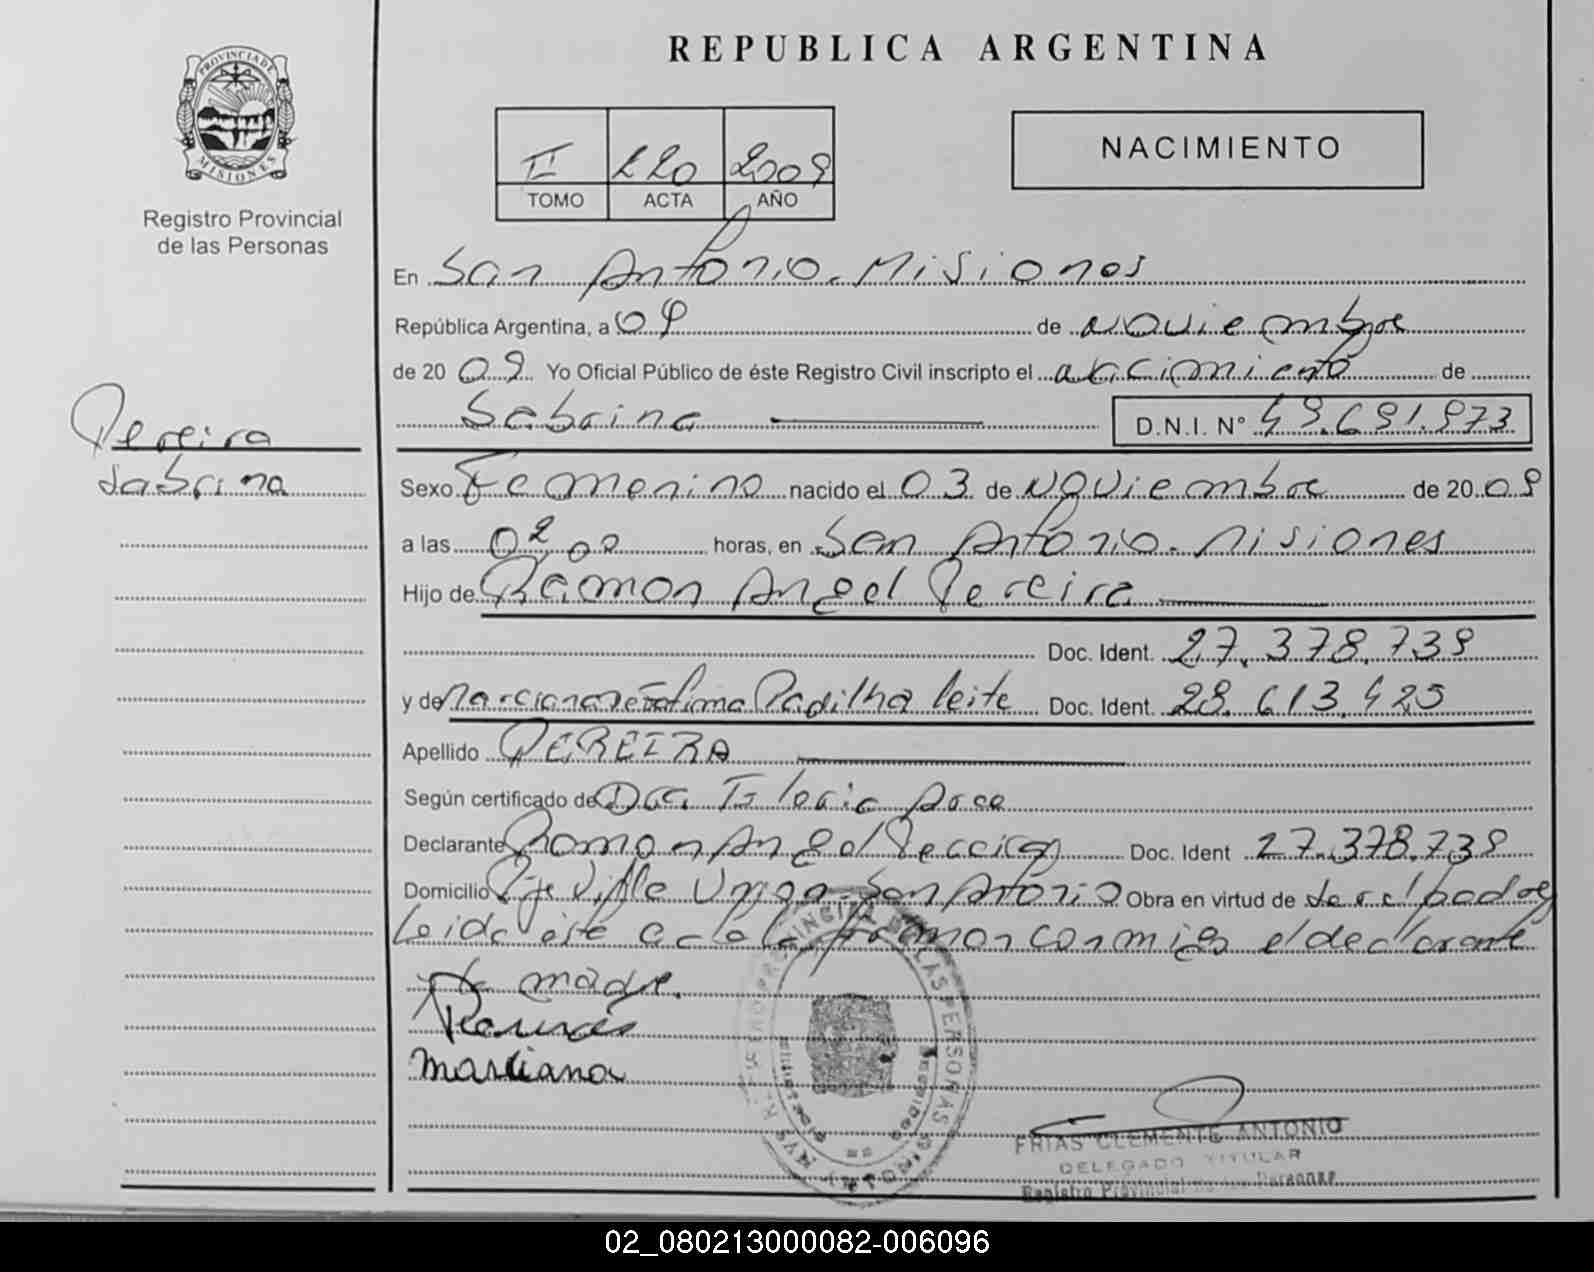 REPUBLICA ARGENTINA
PROVINCIA DE
MISIONES
Registro Provincial
de las Personas
II 220 2009
TOMO ACTA AÑO
NACIMIENTO
En San Antonio. Misiones
República Argentina, a 09 de noviembre
de 20 09 Yo Oficial Público de éste Registro Civil inscripto el nacimiento de
Sabrina D.N.I. N° 49.691.973
Pereira
Sabrina
Sexo Femenino nacido el 03 de Noviembre de 20 09
a las 02,00 horas, en San Antonio. Misiones
Hijo de Ramon Angel Pereira
Doc. Ident. 27.378.739
y de Marciana de Fatima Padilha Leite Doc. Ident. 28.613.425
Apellido PEREIRA
Según certificado de Dra
Declarante Ramon Angel Pereira Doc. Ident 27.378.739
Domicilio Pje Villa Union San Antonio Obra en virtud de ser el padre
Leida este acta la firman conmigo el declarante
y la madre.
Marciana
FRIAS CLEMENTE ANTONIO
DELEGADO TITULAR
Registro Provincial de las Personas
02_080213000082-006096